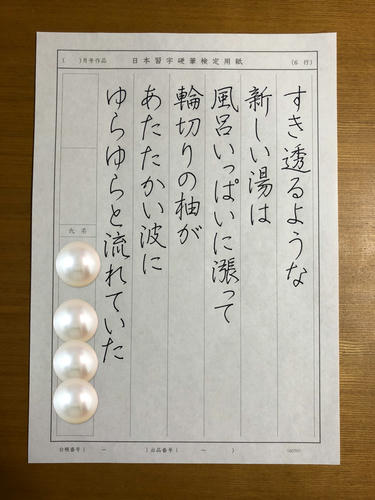 ( )月号作品 日本習字硬筆検定用紙 (6 行)
すき透るような
新しい湯は
風呂いっぱいに漲って
輪切りの柚が
あたたかい波に
ゆらゆらと流れていた
氏名
台帳番号 ( － ) 出品番号 ( － )